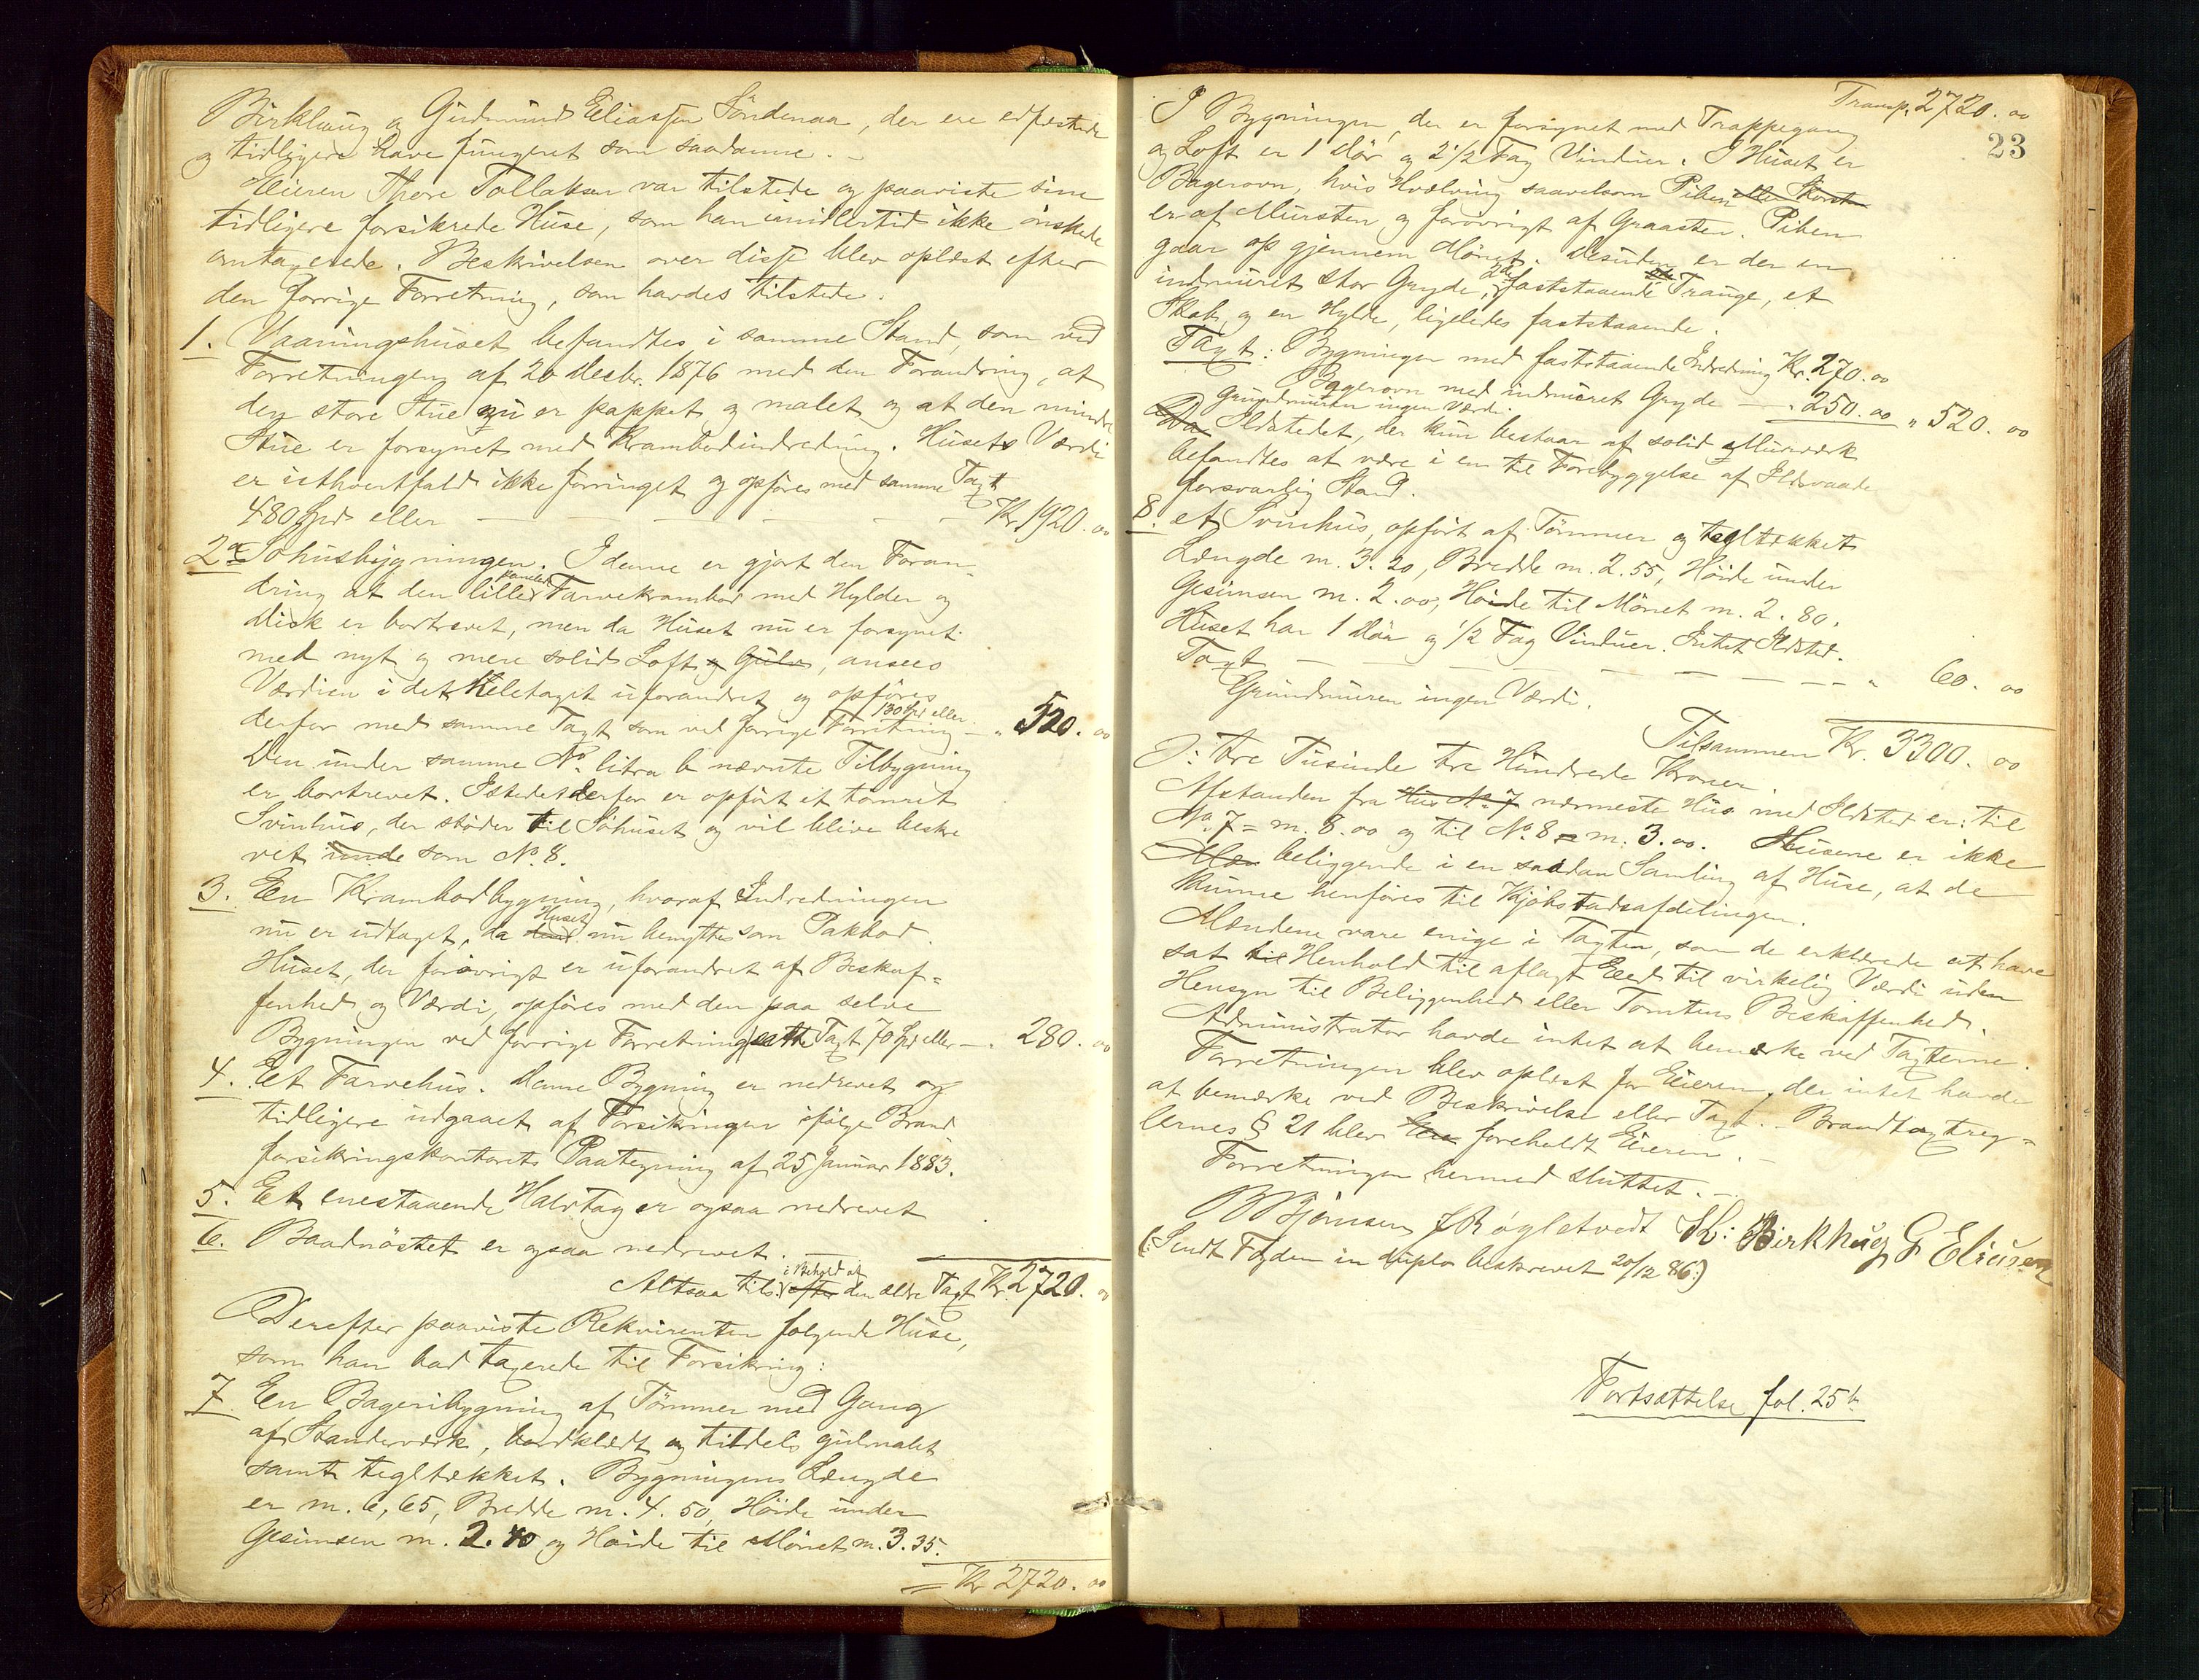 Birkhaug og Gudmund Eliassen Söndenaa, der ere edfæstede
og tidligere have fungeret som saadanne. -
Eieren Thore Tollaksen var tilstede og paaviste sine
tidligere forsikrede Huse, som han imidlertid ikke önskede
omtaxerede. Beskrivelsen over disse blev oplæst efter
den forrige Forretning, som havdes tilstede.
1. Vaaningshuset befandtes i samme Stand, som ved
Forretningen af 20 Decbr. 1876 med den Forandring, at
den store Stue nu er pappet og malet og at den mindre
Stue er forsynet med Krambodindredning. Husets Værdi
er ethvertfald ikke forringet og opföres med samme Taxt
480 Spd eller - - - - - - Kr. 1920.00
2a Söhusbygningen. I denne er gjort den Foran-
dring at den lille panelede Farvekrambod med Hylder og
Disk er bortrevet, men da Huset nu er forsynet
med nyt og mere solid Loft og Gulv, ansees
Værdien i det Heletaget uforandret og opföres
derfor med samme Taxt som ved forrige Forretning 130 Spd eller - " 520.00
Den under samme No. litra b nævnte Tilbygning
er bortrevet. Istedetderfor er opfört et tömret
Svinhus, der stöder til Söhuset og vil blive beskre
vet unde som No. 8.
3. En Krambodbygning, hvoraf Indredningen
nu er udtaget, da den Huset nu benyttes som Pakbod.
Huset, der forövrigt er uforandret af Beskaf-
fenhed og Værdi, opföres med den paa selve
Bygningen ved forrige Forretning satte Taxt 70 Spd eller - " 280.00
4. Et Farvehus. Denne Bygning er nedrevet og
tidligere udgaaet af Forsikringen ifölge Brand
forsikringskontorets Paategning af 25 Januar 1883.
5. Et enestaaende Halvtag er ogsaa nedrevet
6. Baadnöstet er ogsaa nedrevet. -
Altsaa tils. efter i Behold af den ældre Taxt Kr. 2720.00
Derefter paaviste Rekvirenten folgende Huse,
som han bad taxerede til Forsikring:
7. En Bageribygning af Tömmer med Gang
af Standerværk, bordklædt og tildels gulmalet
samt tegltækket. Bygningens Længde
er m. 6.65, Bredde m. 4.50, Höide under
Gesimsen m. 2.40 og Höide til Mönet m. 3.35.
= Kr 2720.00
Transp. 2720.00
23
I Bygningen, der er forsynet med Trappegang
og Loft er 1 Dör og 2 1/2 Fag Vinduer. I Huset er
Bagerovn, hvis Hvælving saavelsom Piben eller Skorsten
er af Mursten og forövrigt af Graasten. Piben
gaar op gjennem Mönet. Desuden er der en
indmuret stor Gryde, 2de faststaaende Trauge, et
Skab og en Hylde, ligeledes faststaaende.
Taxt: Bygningen med faststaaende Indredning Kr. 270.00
Bagerovn med indmuret Gryde - " 250.00 " 520.00
Grundmuren ingen Værdi.
Da Ildstedet, der kun bestaar af solid Murværk
befandtes at være i en til Forebyggelse af Ildsvaade
forsvarlig Stand.
8. et Svinhus, opfört af Tömmer og tegltækket
Længde m. 3.20, Bredde m. 2.55, Höide under
Gesimsen m. 2.00, Höide til Mönet m. 2.80.
Huset har 1 Dör og 1/2 Fag Vinduer. Intet Ildsted.
Taxt - - - - - - - " 60.00
Grundmuren ingen Værdi.
Tilsammen Kr. 3300.00
ɔ: tre Tusinde tre Hundrede Kroner
Afstanden fra Hus No. 7 nærmeste Hus med Ildsted er: til
No. 7 = m. 8.00 og til No. 8 = m. 3.00. Husene er ikke
beliggende i en saadan Samling af Huse, at de
kunne henföres til Kjöbstadsafdelingen.
Mændene vare enige i Taxten, som de erklærede at have
sat til Henhold til aflagt Eed til virkelig Værdi uden
Hensyn til Beliggenhed eller Tomtens Beskaffenhed.
Administrator havde intet at bemærke ved Taxterne.
Forretningen blev oplæst for Eieren, der intet havde
at bemærke ved Beskrivelse eller Taxt. - Brandtaxtreg-
lernes § 21 blev foreholdt Eieren. -
Forretningen hermed sluttet. -
B Björnsen J Rögletvedt Sk: Birkhaug G Eliasen
(Sendt Fogden in duplo beskrevet 20/12 86.)
Fortsættelse fol. 25 b